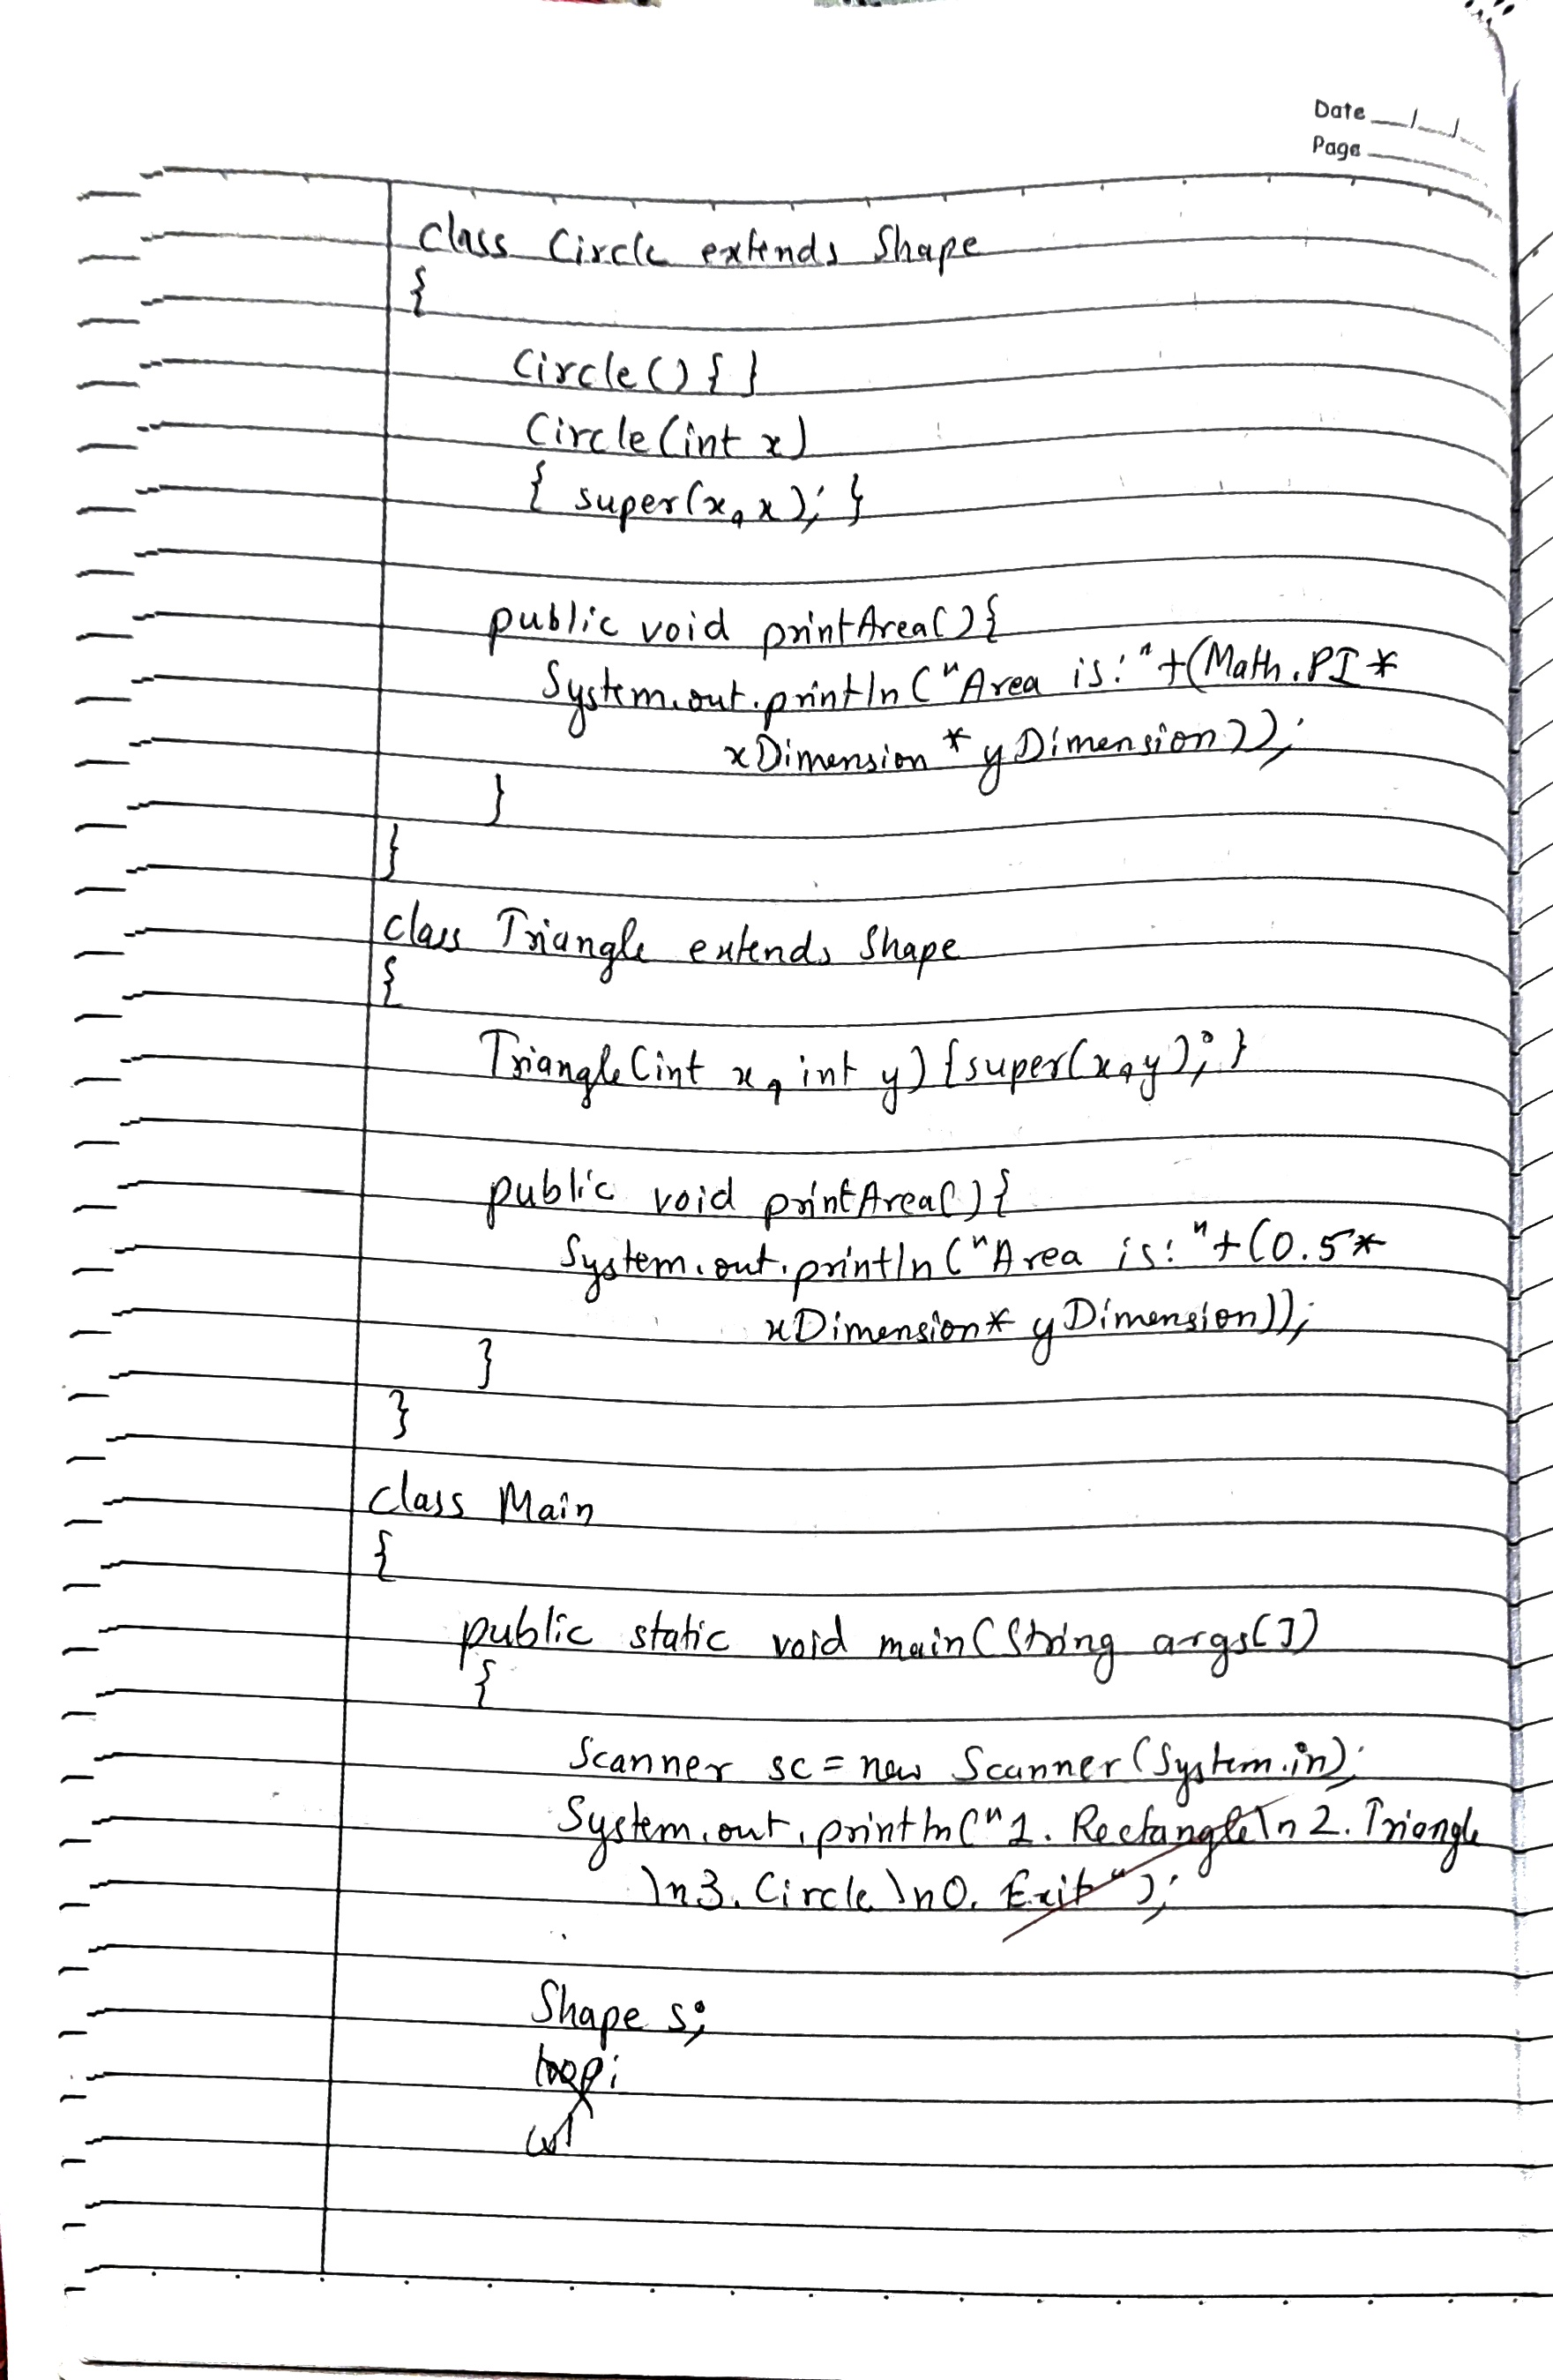 Date
Page
class Circle extends Shape
{
Circle() { }
Circle(int x)
{ super(x, x); }
public void printArea(){
System.out.println("Area is:"+(Math.PI*
xDimension * yDimension));
}
}
class Triangle extends Shape
{
Triangle(int x, int y) {super(x,y); }
public void printArea(){
System.out.println("Area is:"+(0.5*
xDimension* yDimension));
}
}
class Main
{
public static void main(String args[])
{
Scanner sc = new Scanner(System.in);
System.out.println("1. Rectangle\n 2. Triangle
\n3. Circle \n0. Exit");
Shape s;
loop: